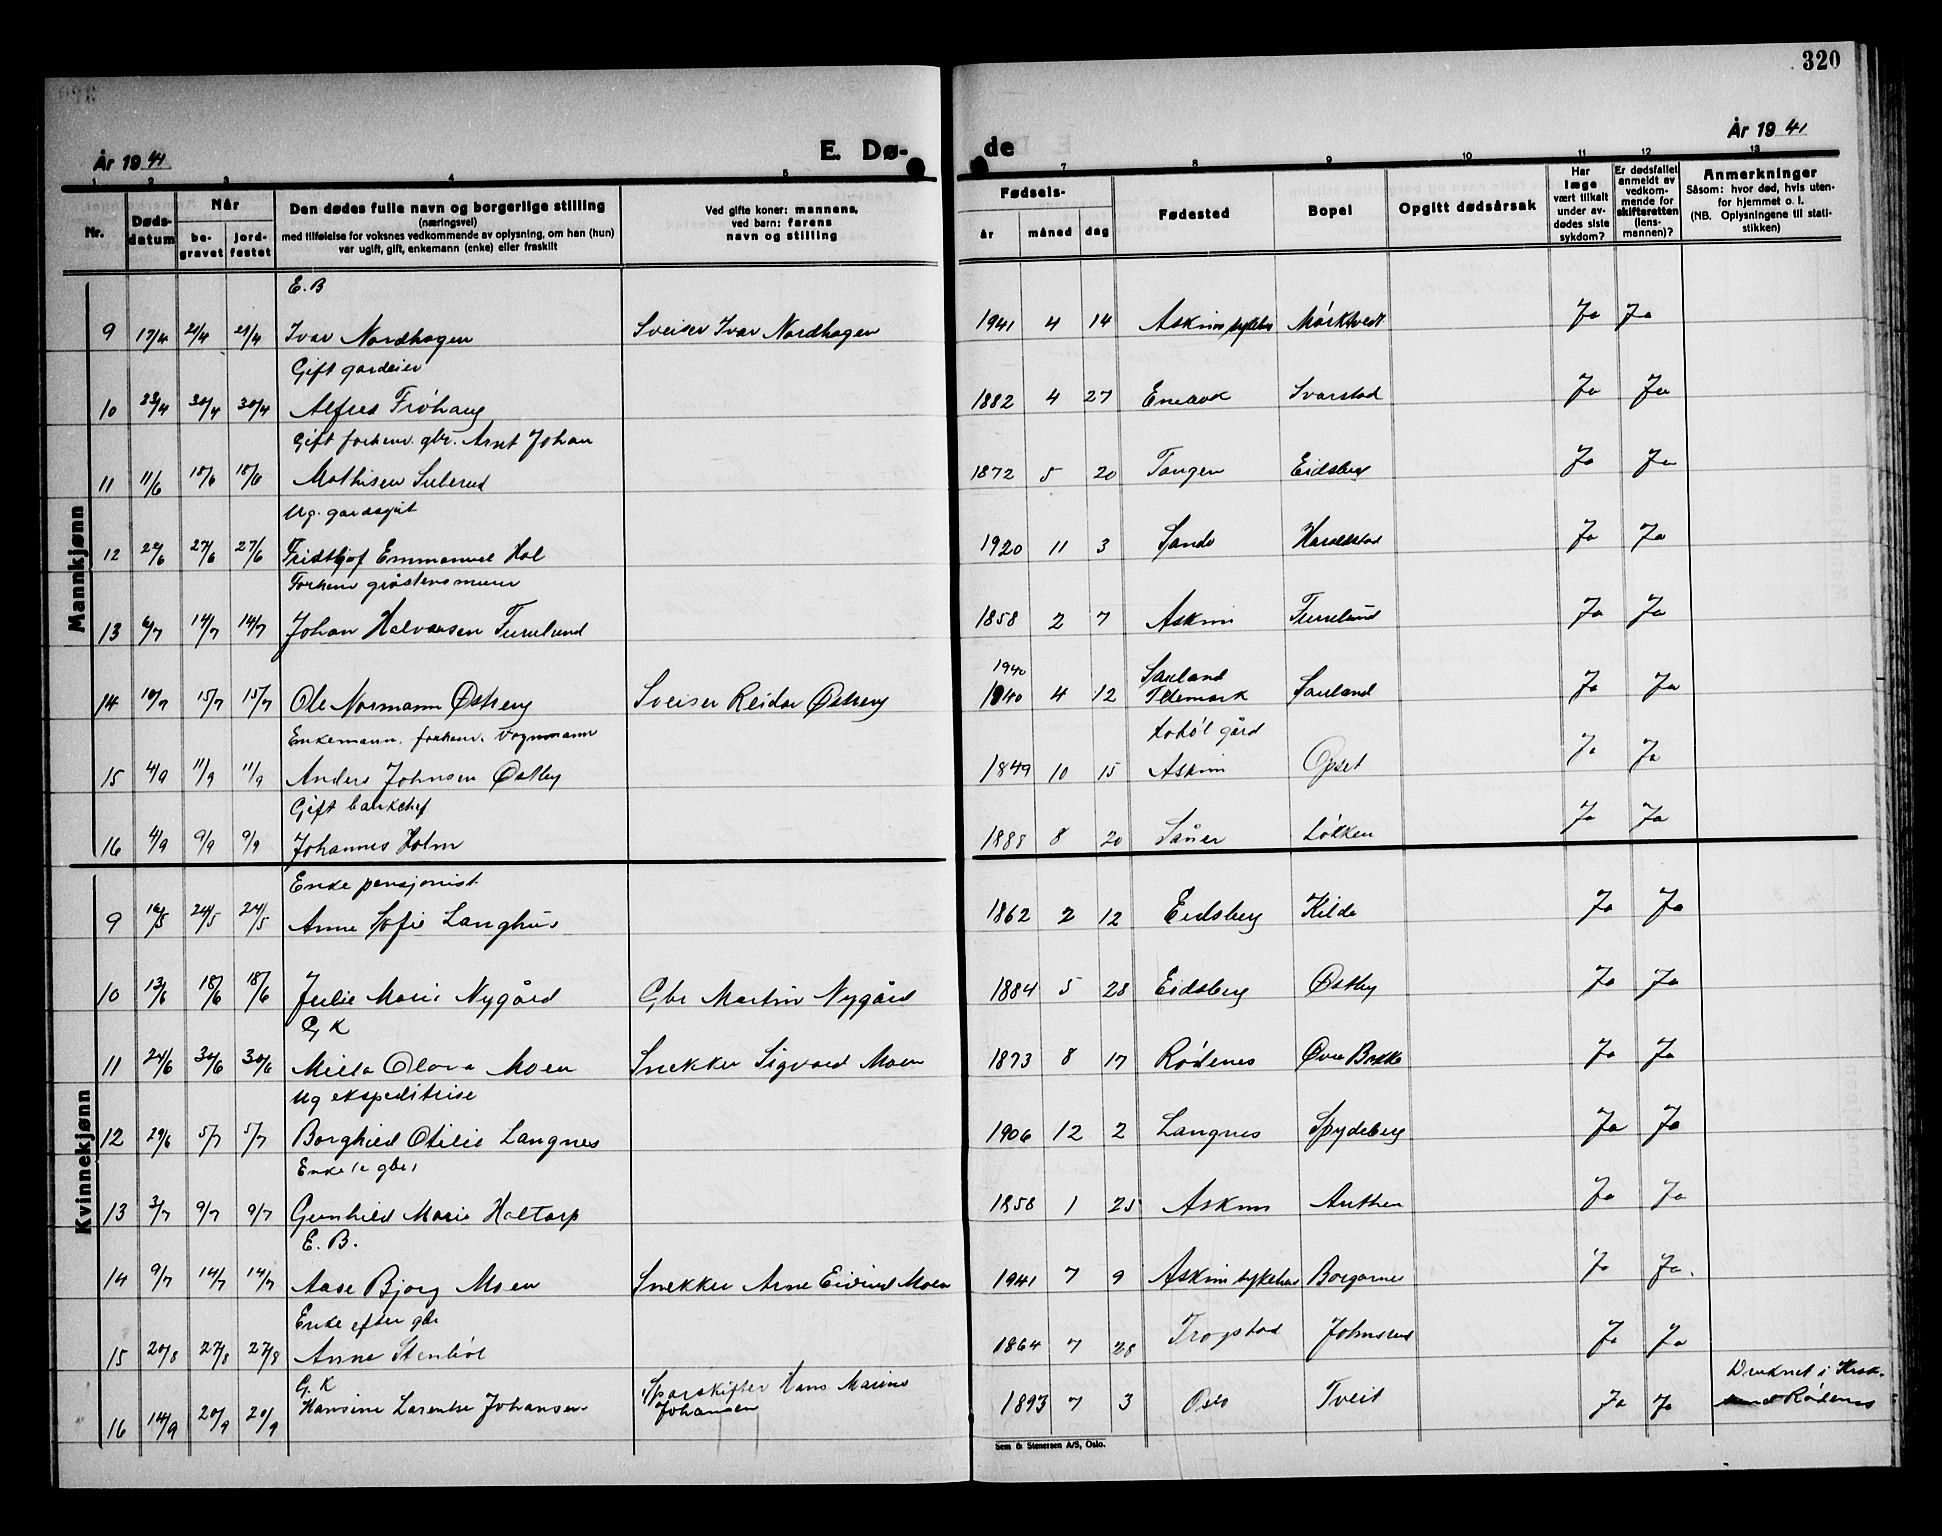 320
År 1941
E. Dø-
de
År 1941
1 2 3 4 5 7 8 9 10 11 12 13
Nr.
Døds-
datum
Når
be-
gravet
jord-
festet
Den dødes fulle navn og borgerlige stilling
(næringsvei)
med tilføielse for voksnes vedkommende av oplysning, om han (hun)
var ugift, gift, enkemann (enke) eller fraskilt
Ved gifte koner: mannens,
ved barn: farens
navn og stilling
Fødsels-
år måned dag
Fødested
Bopel
Opgitt dødsårsak
Har
læge
vært tilkalt
under av-
dødes siste
sykdom?
Er dødsfallet
anmeldt av
vedkom-
mende for
skifteretten
(lens-
mannen)?
Anmerkninger
Såsom: hvor død, hvis uten-
for hjemmet o. l.
(NB. Oplysningene til stati-
stikken)
Mannkjønn
E. B
9 17/4 21/4 21/4 Ivar Nordhagen Sveiser Ivar Nordhagen 1941 4 14 Askim sykehus Mørktvedt Ja Ja
Gift gardeier
10 23/4 30/4 30/4 Alfred Frøhaug 1882 4 27 Enebakk Svarstad Ja Ja
Gift forhenv. gbr. Arnt Johan
11 11/6 18/6 18/6 Mathisen Sulerud 1872 5 20 Tangen Eidsberg Ja Ja
Ug. gardsgut
12 22/6 27/6 27/6 Fridthjof Emmanuel Hol 1920 11 3 Sande Haraldstad Ja Ja
Forhenv gråstensmurer
13 6/7 14/7 14/7 Johan Halvorsen Furulund 1858 2 7 Askim Furulund Ja Ja
1940 Sauland
14 10/7 15/7 15/7 Ole Normann Østreng Sveiser Reidar Østreng 1940 4 12 Telemark Sauland Ja Ja
Enkemann. forhenv. vognmann gård
15 4/9 11/9 11/9 Anders Johnsen Østby 1849 10 15 Askim Opset Ja Ja
Gift banksjef
16 4/9 9/9 9/9 Johannes Holm 1888 8 20 Såner Løkken Ja Ja
Kvinnekjønn
Enke pensjonist
9 16/5 24/5 24/5 Anne Sofie Langhus 1862 2 12 Eidsberg Kilde Ja Ja
10 13/6 18/6 18/6 Julie Marie Nygård Gbr Martin Nygård 1884 5 28 Eidsberg Østby Ja Ja
G K
11 24/6 30/6 30/6 Milla Olava Moen Snekker Sigvard Moen 1873 8 17 Rødenes Øvre Bakke Ja Ja
Ug ekspeditrise
12 29/6 5/7 5/7 Borghild Otilie Langnes 1906 12 2 Langnes Spydeberg Ja Ja
Enke e gbr,
13 3/7 9/7 9/7 Gunhild Marie Haltorp 1858 1 25 Askim Authen Ja Ja
E. B.
14 9/7 14/7 14/7 Aase Bjorg Moen Snekker Arne Eivind Moen 1941 7 9 Askim sykehus Borgarnes Ja Ja.
Enke efter gbr
15 20/8 27/8 27/8 Anne Stenbøl 1864 7 28 Trøgstad Johnsrud Ja Ja
G. K Sporskifter Hans Marino Druknet i
16 14/9 20/9 20/9 Hansine Larentse Johansen Johansen 1893 7 3 Oslo Tveit Ja Ja Rødenes
Sem & Stenersen A/S, Oslo.